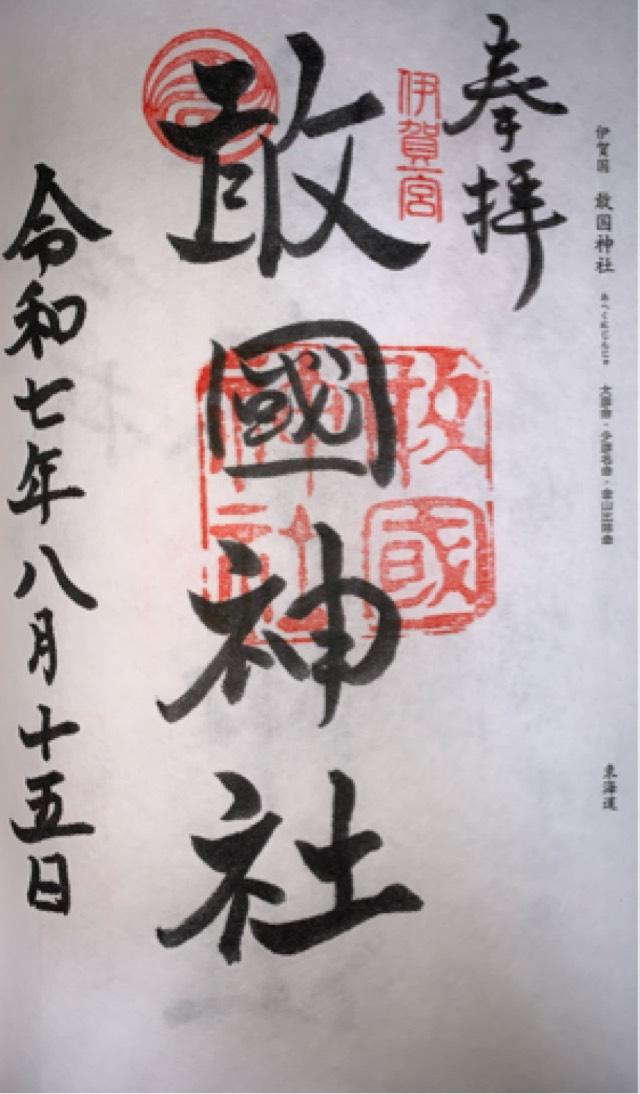 伊賀国 敢国神社 あへくにじんじゃ 大彦命・少彦名命・金山比咩命
東海道
奉拝
伊賀一宮
敢國神社
敢國神社
令和七年八月十五日